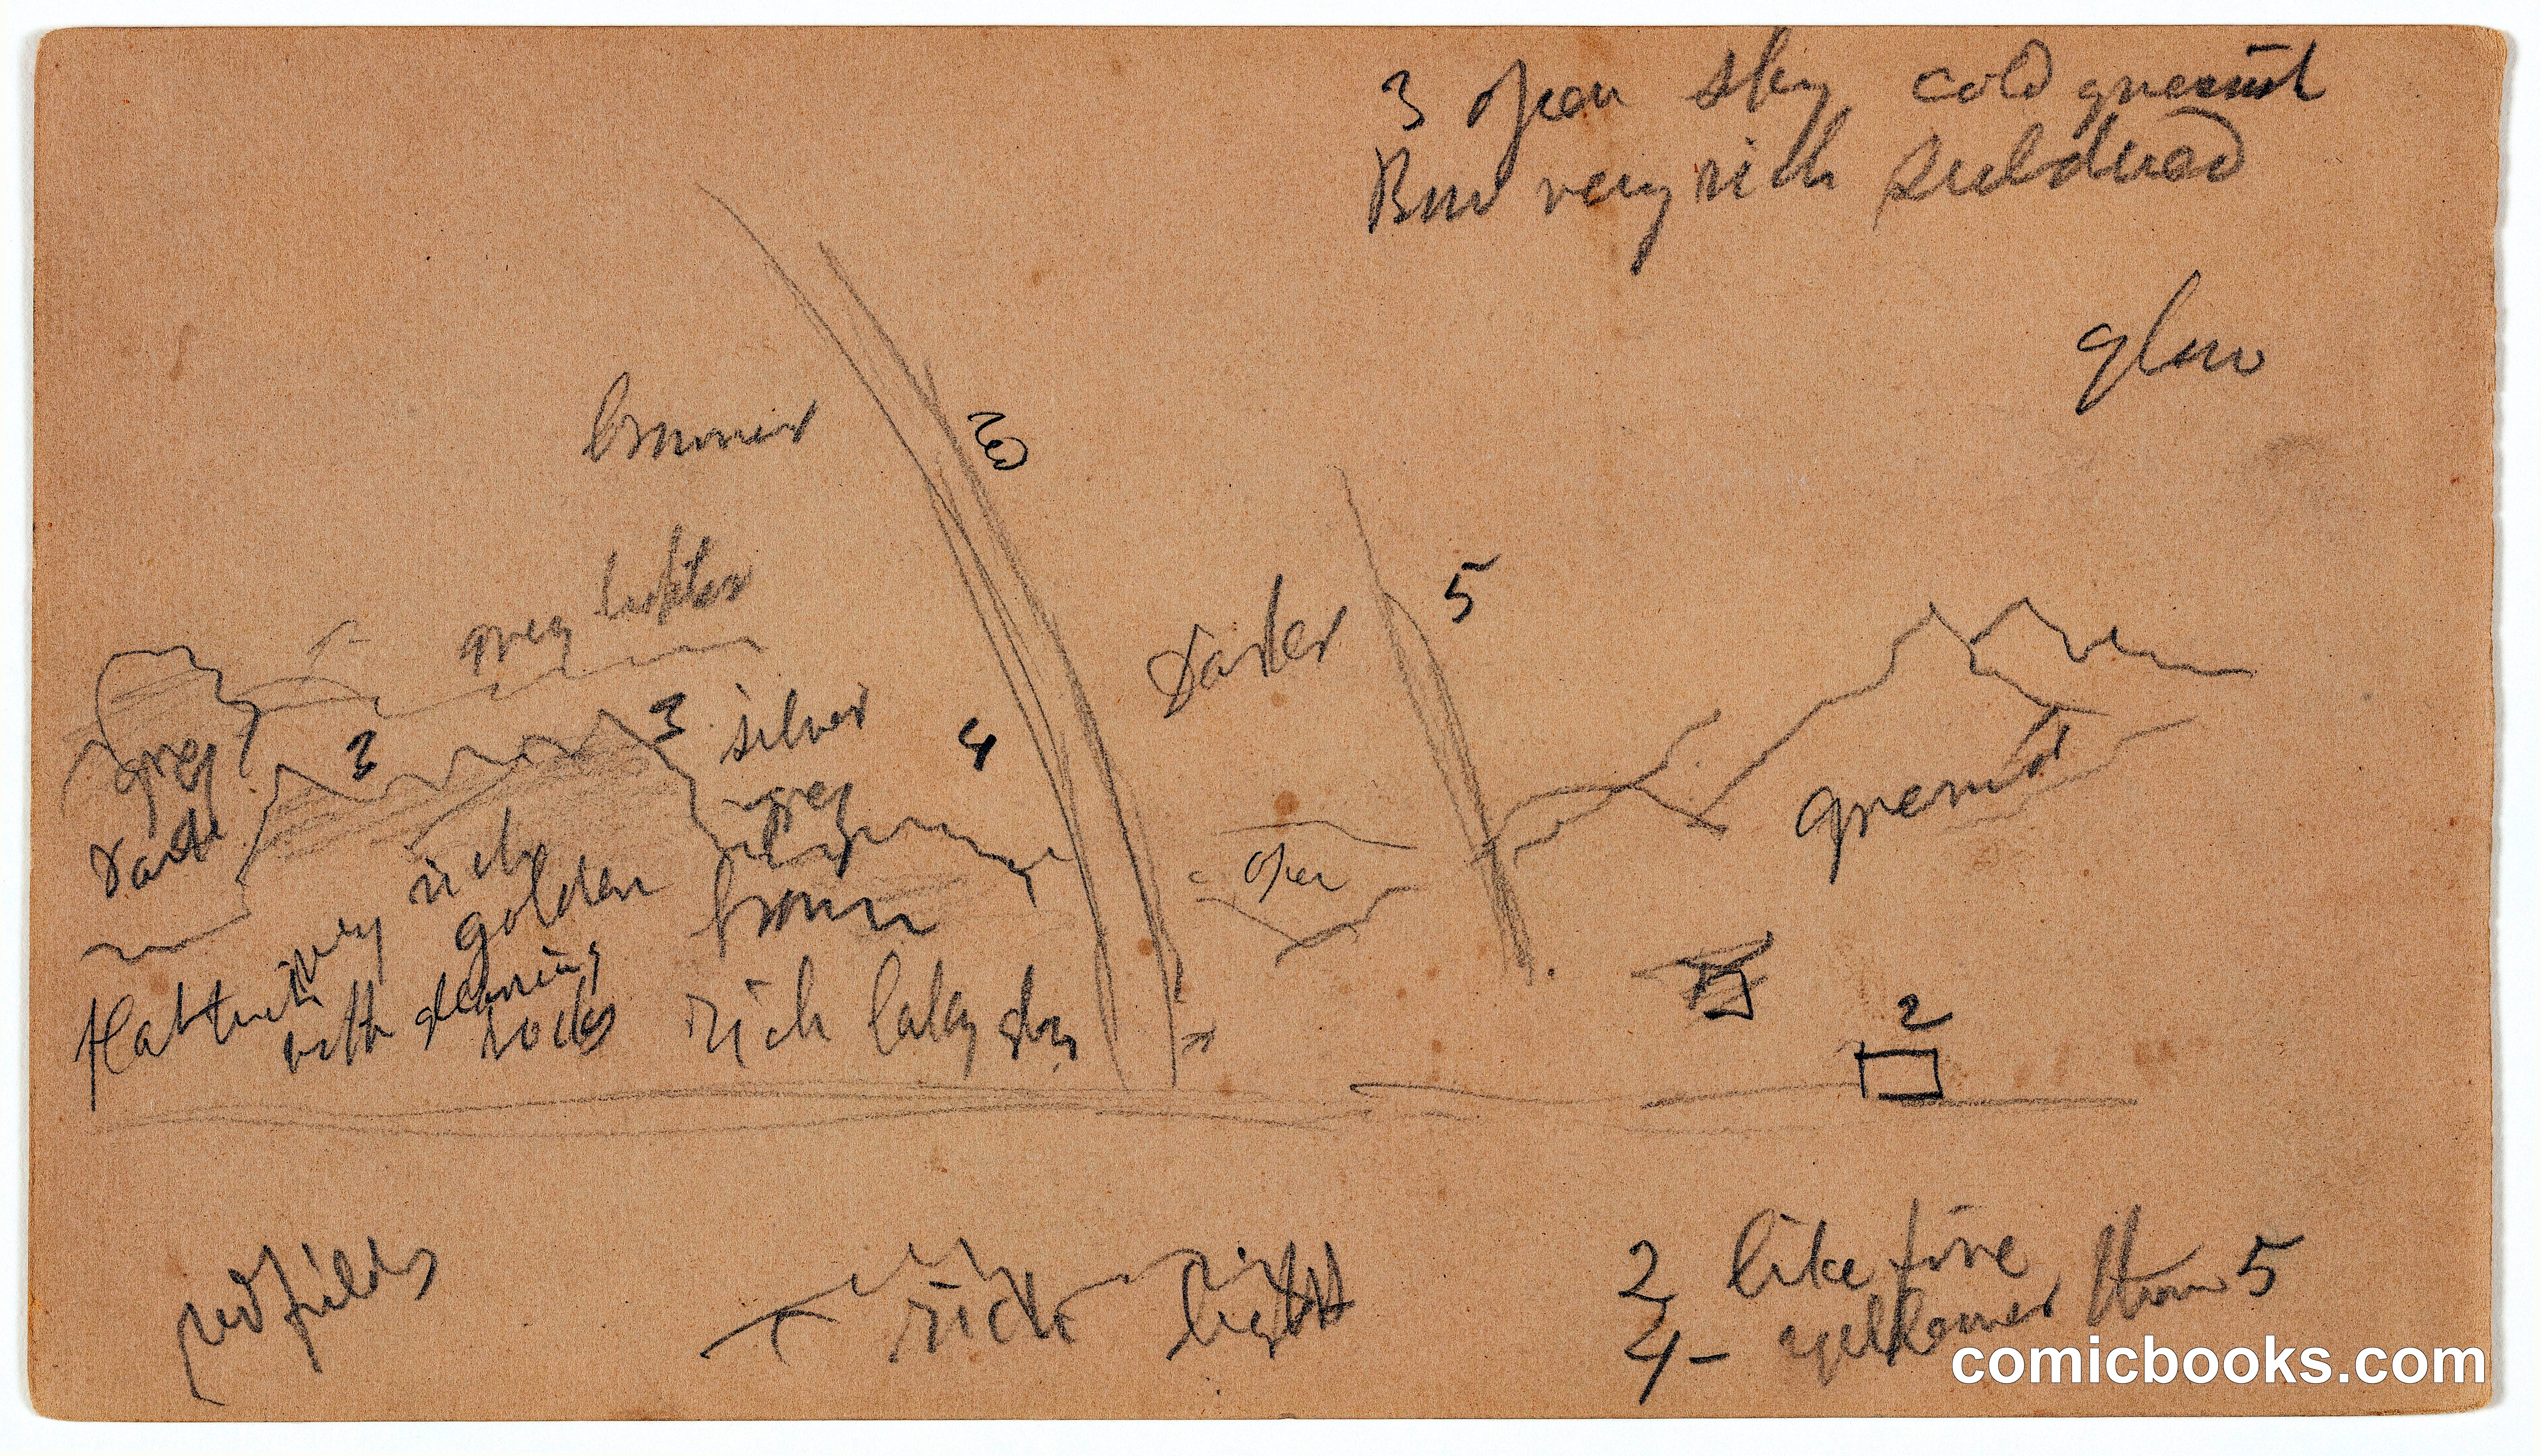 3 open sky cold greenish
But very rich subdued
glow
browner
red
grey lighter
5
darker
3
3
silver
4
grey
dark
grey
greenish
rich
open
very golden
brown
with gleaming
rocks
rich laky
2
red fields
rich light
2 like fire
4 - yellower than 5
comicbooks.com